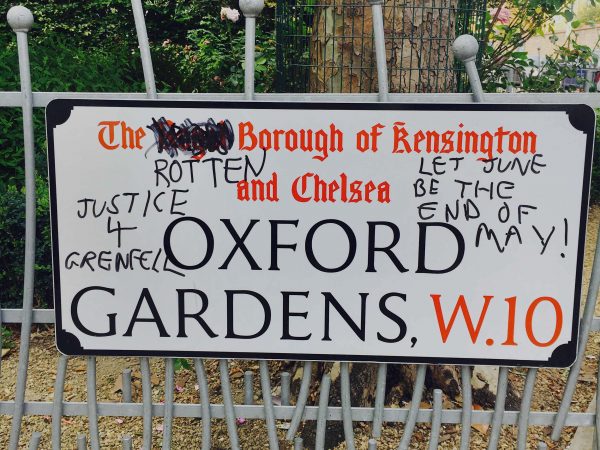 The Borough of Kensington
ROTTEN
and Chelsea
JUSTICE
4
GRENFELL
LET JUNE
BE THE
END OF
MAY!
OXFORD
GARDENS, W.10